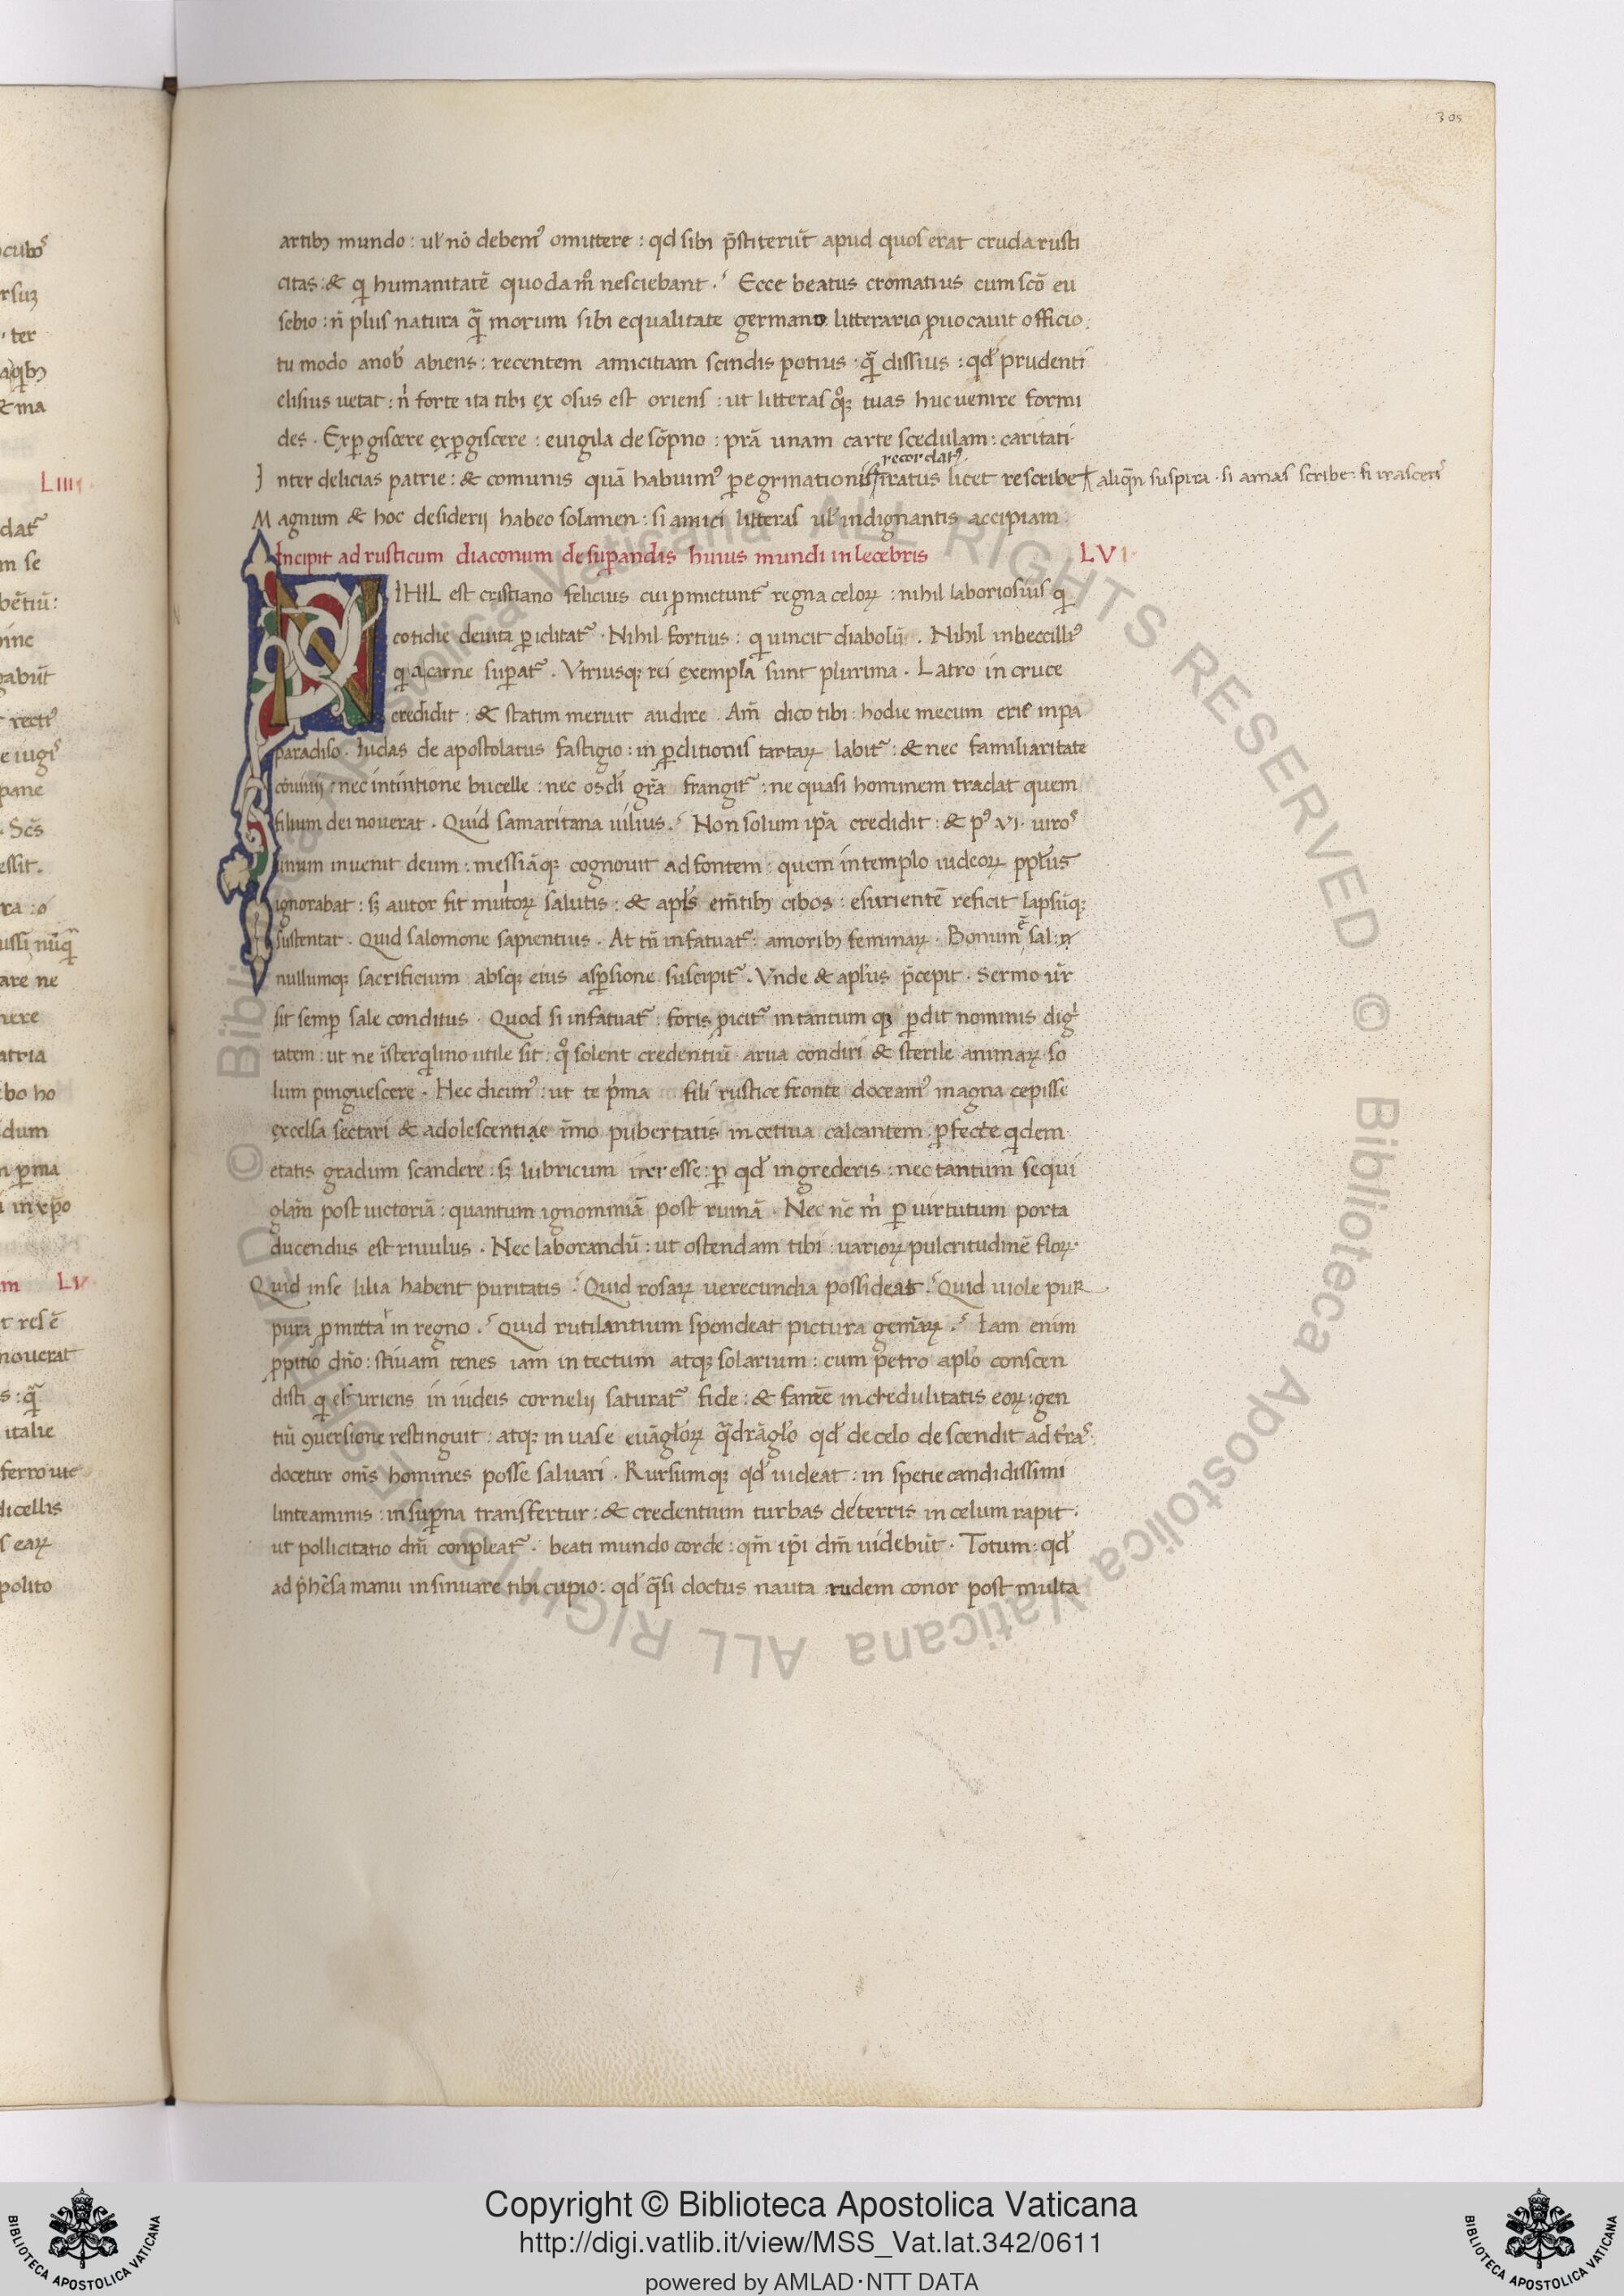 305
artibꝫ mundo : ul' nō debemꝰ omittere : qd sibi p̄stiterūt apud quos erat cruda rusti
citas : & qi humanitatē quodam̊ nesciebant ? Ecce beatus cromatius cum scō eu
sebio : n̄ plus natura q̄ morum sibi equalitate germano litterario ꝓuocauit officio :
tu modo anob̄ abiens : recentem amicitiam scindis potius : q̄ dissius : qd' prudenti
elisius uetat : nⁱ forte ita tibi ex osus est oriens : ut litteras qͦꝫ tuas huc uenire formi
des . Exꝑgiscere exꝑgiscere : euigila de sōpno : prā unam carte scedulam : caritati
recordatꝰ
Inter delicias patrie : & comunis quā habuimꝰ ꝑegrinationis iratus licet rescribe aliqn̄ suspira . si amas scribe : si irasceris
Magnum & hoc desiderij habeo solamen : si amici litteras ul' indignantis accipiam
Incipit ad rusticum diaconum de suꝑandis huius mundi inlecebris LVI
NIHIL est cristiano felicius cui ꝓmictunt̃ regna celoꝝ : nihil laboriosius qi
cotidie deuita ꝑiclitat̃ . Nihil fortius : qi uincit diabolū . Nihil inbeccilliꝰ
qi a carne suꝑat̃ . Vtriusqꝫ rei exempla sunt plurima . Latro in cruce
credidit : & statim meruit audire . Am̄ dico tibi : hodie mecum eris in pa
paradiso . Iudas de apostolatus fastigio : in ꝑditionis tartaꝝ labit̃ : & nec familiaritate
cōuiuij : nec intintione bucelle : nec osc̄li gr̄a frangit̃ : ne quasi hominem tradat quem
filium dei nouerat . Quid samaritana uilius ? Non solum ip̄a credidit : & pꝰ VI . uiros
unum inuenit deum : messiāqꝫ cognouit ad fontem : quem in templo iudeoꝝ pp̄l'us
ignorabat : sꝫ autor fit multoꝝ salutis : & apl's em̄tibꝫ cibos : esurientē reficit lapsūqꝫ
sustentat . Quid salomone sapientius . At tn̄ infatuat̃ : amoribꝫ feminaꝝ . Bonum ē sal : n̄
nullumqꝫ sacrificium absqꝫ eius asꝑsione suscipit̃ . Vnde & apl'us p̄cepit . Sermo ur̄
sit semꝑ sale conditus . Quod si infatuat̃ : foris ꝓicit̃ intantum qꝫ ꝑdit nominis digⁱ
tatem : ut ne īsterqⁱlino utile sit : qͦ solent credentiū arua condiri & sterile animaꝝ so
lum pinguescere . Hec dicimꝰ : ut te pⁱma fili rustice fronte doceamꝰ magna cepisse
excelsa sectari & adolescentiae īmo pubertatis incetiua calcantem ꝑfecte qⁱdem
etatis gradum scandere : sꝫ lubricum iter esse : ꝑ qd' ingrederis : nec tantum sequi
gl'am post uictoriā : quantum ignominiā post ruinā . Nec nē mⁱ ꝑ uirtutum porta
ducendus est riuulus . Nec laborandū : ut ostendam tibi : uarioꝝ pulcritudinē floꝝ .
Quid inse lilia habent puritatis ? Quid rosaꝝ uerecundia possideat ? Quid uiole pur
pura ꝓmitta in regno ? Quid rutilantium spondeat pictura gem̄aꝝ ? Iam enim
ꝓpitio dn̄o : stiuam tenes iam in tectum atqꝫ solarium : cum petro apl'o conscen
disti qi esuriens in iudeis cornelij saturat̃ fide : & famē incredulitatis eoꝝ : gen
tiū ꝯuersione restinguit : atqꝫ in uase euāgl'oꝝ q̄drāgl'o qd' de celo descendit ad tr̄as
docetur om̄s homines posse saluari . Rursumqꝫ qd' uideat : in spetie candidissimi
linteaminis : insuꝑna transfertur : & credentium turbas de terris in celum rapit .
ut pollicitatio dn̄i conpleat̃ . beati mundo corde : qm̄ ip̄i dm̄ uidebūt . Totum : qd'
ad p̄hēsa manu insinuare tibi cupio : qd' q̄si doctus nauta rudem conor post multa
cubos
rsuꝫ
. ter
LIIII
datꝰ
m se
inc
recti
pane
. Scs
essit .
are ne
atria
bo ho
dum
m LV
nouerat
italie
dicellis
polito
© Biblioteca Apostolica Vaticana ALL RIGHTS RESERVED © Biblioteca Apostolica Vaticana ALL RIGHTS RESERVED
Copyright © Biblioteca Apostolica Vaticana
http://digi.vatlib.it/view/MSS_Vat.lat.342/0611
powered by AMLAD·NTT DATA
BIBLIOTECA APOSTOLICA VATICANA
BIBLIOTECA APOSTOLICA VATICANA